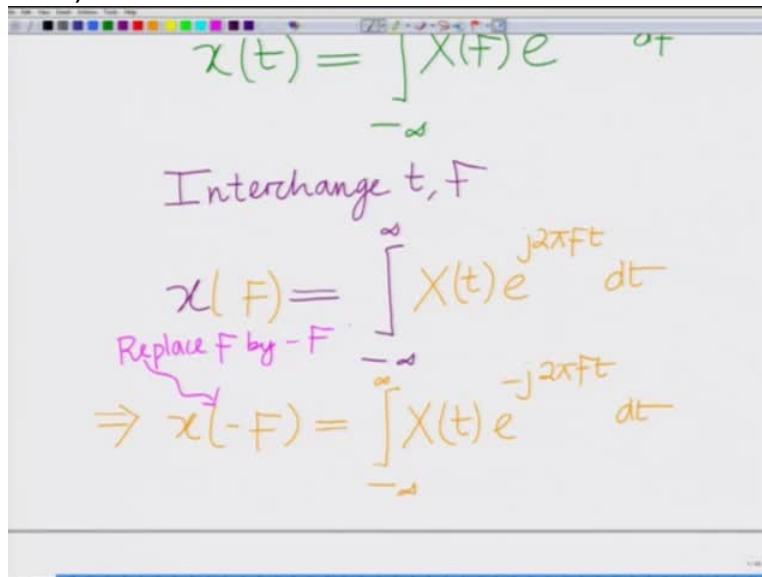 x(t) = ∫ X(F) e dF
-∞
Interchange t, F
∞
x(F) = ∫ X(t) e^{j2πFt} dt
-∞
Replace F by -F
∞
⇒ x(-F) = ∫ X(t) e^{-j2πFt} dt
-∞